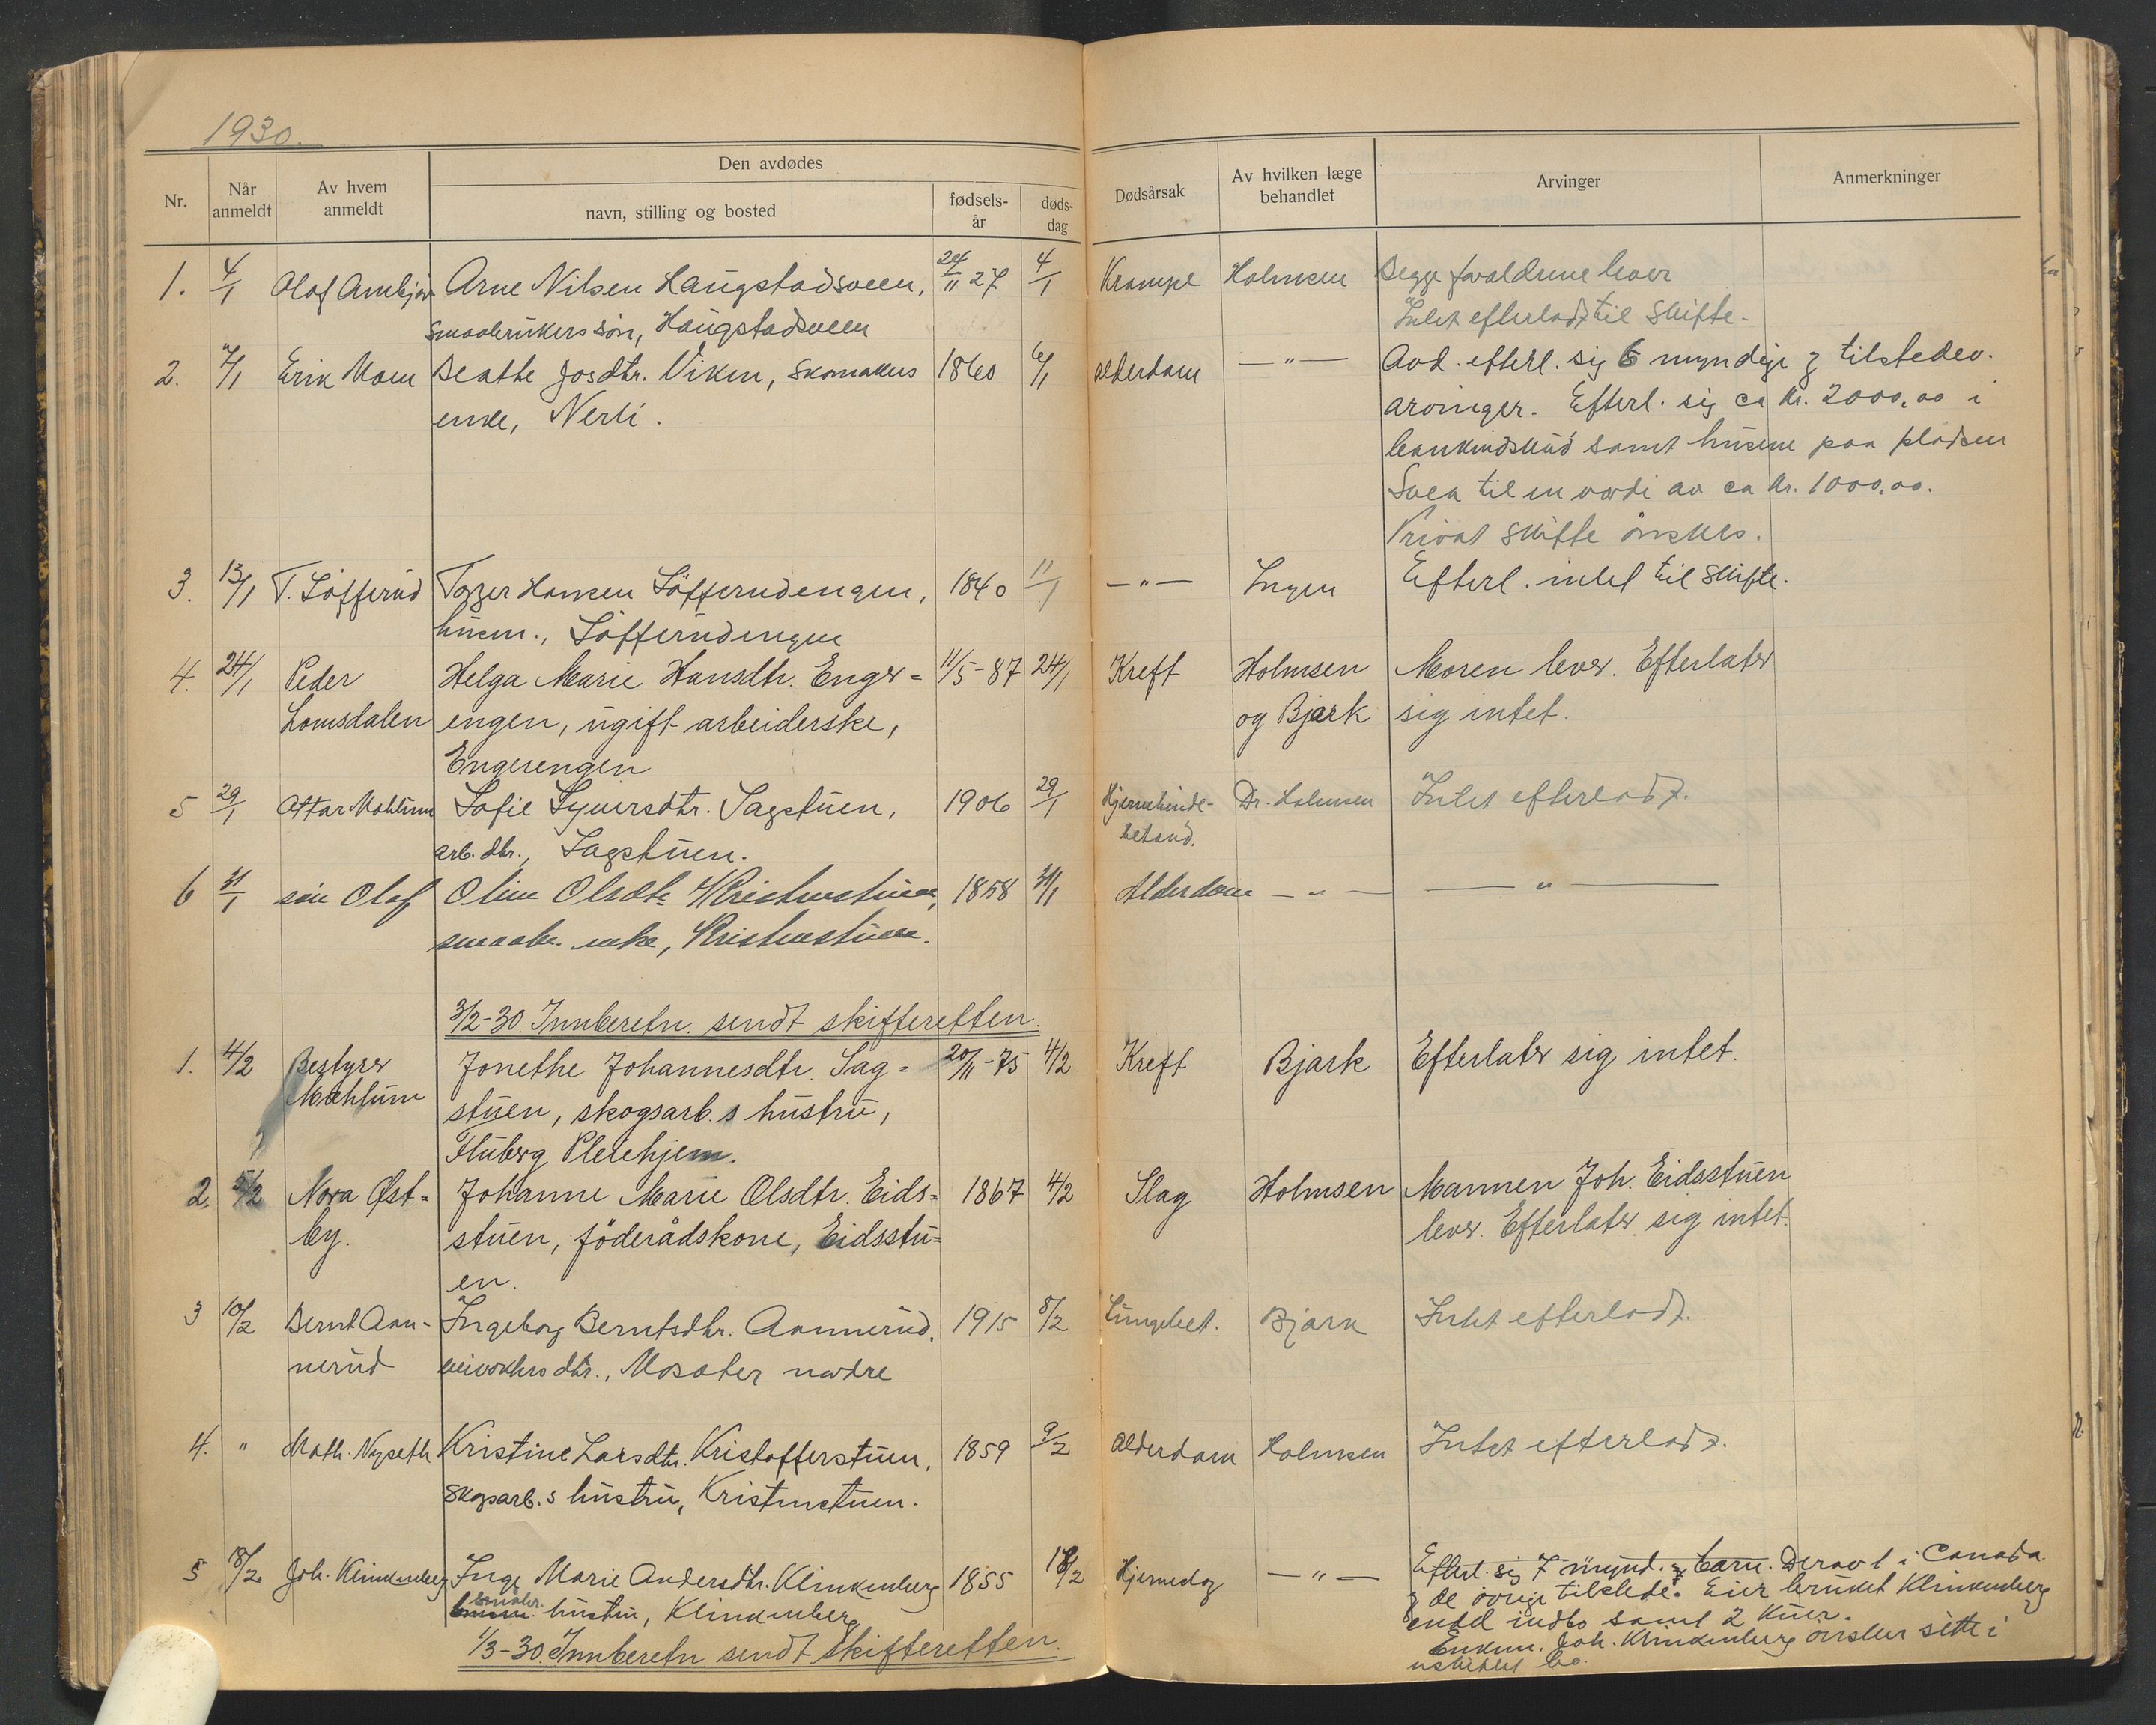 1930.
Den avdødes
Nr.
Når anmeldt
Av hvem anmeldt
navn, stilling og bosted
fødsels-år
døds-dag
Dødsårsak
Av hvilken læge behandlet
Arvinger
Anmerkninger
1. 4/1 Olof Arnbjør Arne Nilsen Haugstadsveen, 24/11 27 4/1 Krampe Holmsen Begge foraldrene lever
smaabrukers søn, Haugstadsveen Intet efterladt til skifte.
2. 7/1 Erik Moen Beathe Josdtr. Viken, skomakers 1860 6/1 alderdom —"— Avd. efterl. sig 6 myndige & tilstedev.
enke, Nerli. arvinger. Efterl. sig ca kr. 2000,00 i
bankindskud samt husene paa pladsen
Svea til en værdi av ca kr. 1000,00.
Privat skifte ønskes.
3. 13/1 T. Søfferud Torger Hansen Søfferudengen, 1840 11/1 —"— Ingen Efterl. intet til skifte.
husm., Søfferudengen
4. 24/1 Peder Helga Marie Hansdtr. Enger= 11/5-87 24/1 Kreft Holmsen Moren lever. Efterlater
Lomsdalen engen, ugift arbeiderske, og Bjark sig intet.
Engerengen
5 29/1 Ottar Mahlum Sofie Syversdtr. Sagstuen, 1906 29/1 Hjernehinde- Dr. Holmsen Intet efterladt.
arb. dtr., Sagstuen. betænd.
6 31/1 søn Olaf Oline Olsdtr. Kristenstuen, 1858 31/1 Alderdom —"— —"—
smaabr. enke, Kristenstuen.
3/2-30. Innberetn. sendt skifteretten.
1. 4/2 Bestyrer Jonethe Johannesdtr. Sag= 20/11-75 4/2 Kreft Bjark Efterlater sig intet.
Mæhlum stuen, skogsarb.s hustru,
Fluberg Pleiehjem.
2. 5/2 Nora Øst= Johanne Marie Olsdtr. Eids= 1867 4/2 Slag Holmsen Mannen Joh. Eidsstuen
by. stuen, föderådskone, Eidsstu= lever. Efterlater sig intet.
en.
3 10/2 Bernt Aan- Ingeborg Berntsdtr. Aannerud, 1915 8/2 Lungebet. Bjark Intet efterladt.
nerud veivokters dtr., Mosæter nedre
4. " Math. Nyseth Kristine Larsdtr. Kristofferstuen, 1859 9/2 alderdom Holmsen Intet efterladt.
skogsarb.s hustru, Kristenstuen.
5 18/2 Joh. Klinkenberg Inge Marie Andersdtr. Klinkenberg 1855 18/2 Hjernedøg —"— Efterl. sig 7 mynd. & barn. Derav 1 i Canada
smabr. hustru, Klinkenberg & de øvrige tilstede. Eier bruket Klinkenberg
1/3-30. Innberetn sendt skifteretten. endel indbo samt 2 kuer.
Enkem. Joh. Klinkenberg ønsker sitte i
uskiftet bo.